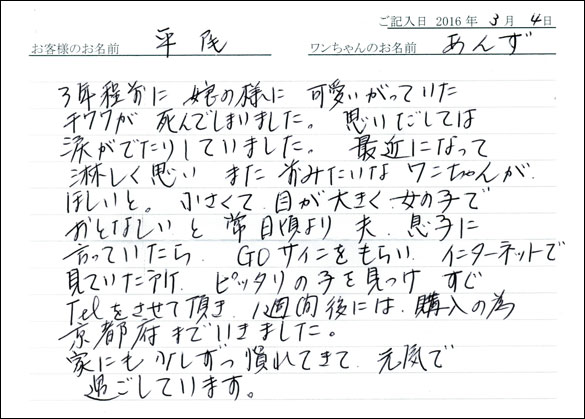 ご記入日 2016 年 3 月 4 日
お客様のお名前 平尾 ワンちゃんのお名前 あんず
3年程前に 娘の様に 可愛いがっていた
チワワが 死んでしまいました。 思いだしては
涙がでたりしていました。 最近になって
淋しく思い また 前みたいな ワンちゃんが
ほしいと。 小さくて 目が大きく 女の子で
おとなしいと 常日頃より 夫、息子に
言っていたら GOサインをもらい インターネットで
見ていた所 ピッタリの子を見つけ すぐ
Telをさせて頂き 1週間後には 購入の為
京都府までいきました。
家にも 少しずつ 慣れてきて 元気で
過ごしています。